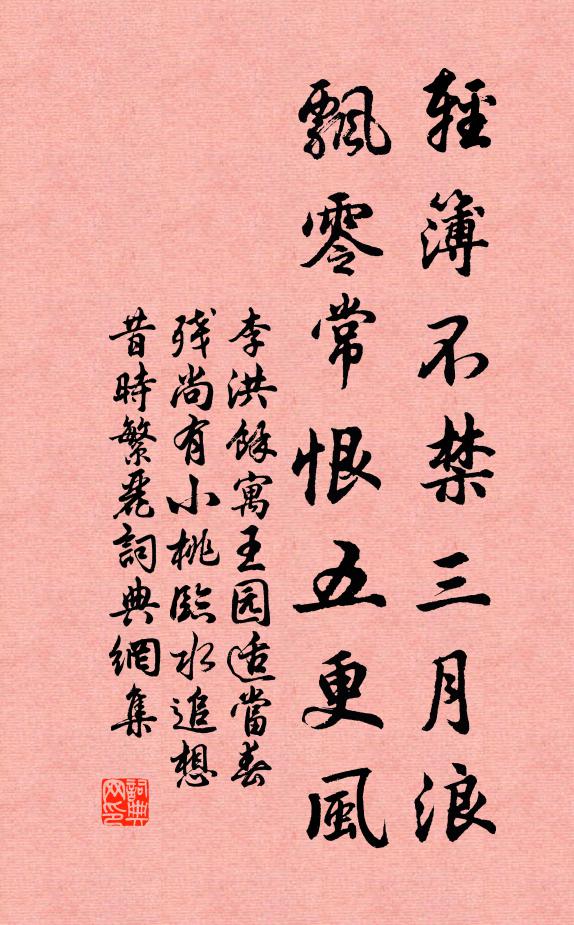 輕簿不禁三月浪
飄零常恨五更風
李洪餘寓王园适當春
殘尚有小桃臨水追想
昔時繁麗詞典網集
詞典网印